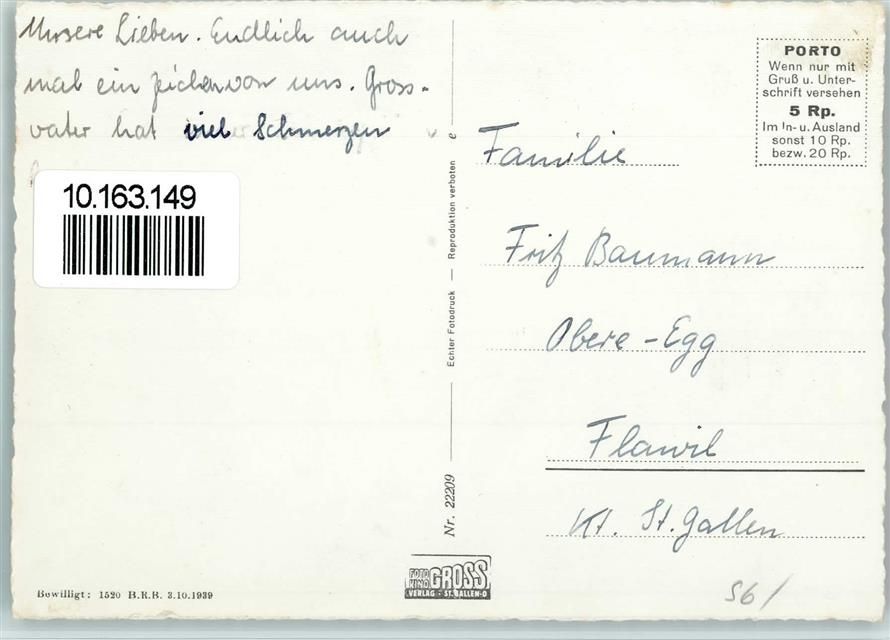 Unsere Lieben. Endlich auch
mal ein zeichen von uns. Gross-
vater hat viel Schmerzen
10.163.149
Bewilligt: 1520 B.R.B. 3.10.1939
Nr. 22209 — Echter Fotodruck — Reproduktion verboten
FOTO KINO GROSS
VERLAG - ST. GALLEN-O
PORTO
Wenn nur mit
Gruß u. Unter-
schrift versehen
5 Rp.
Im In- u. Ausland
sonst 10 Rp.
bezw. 20 Rp.
Familie
Fritz Baumann
Obere-Egg
Flawil
Kt. St. Gallen
S6/